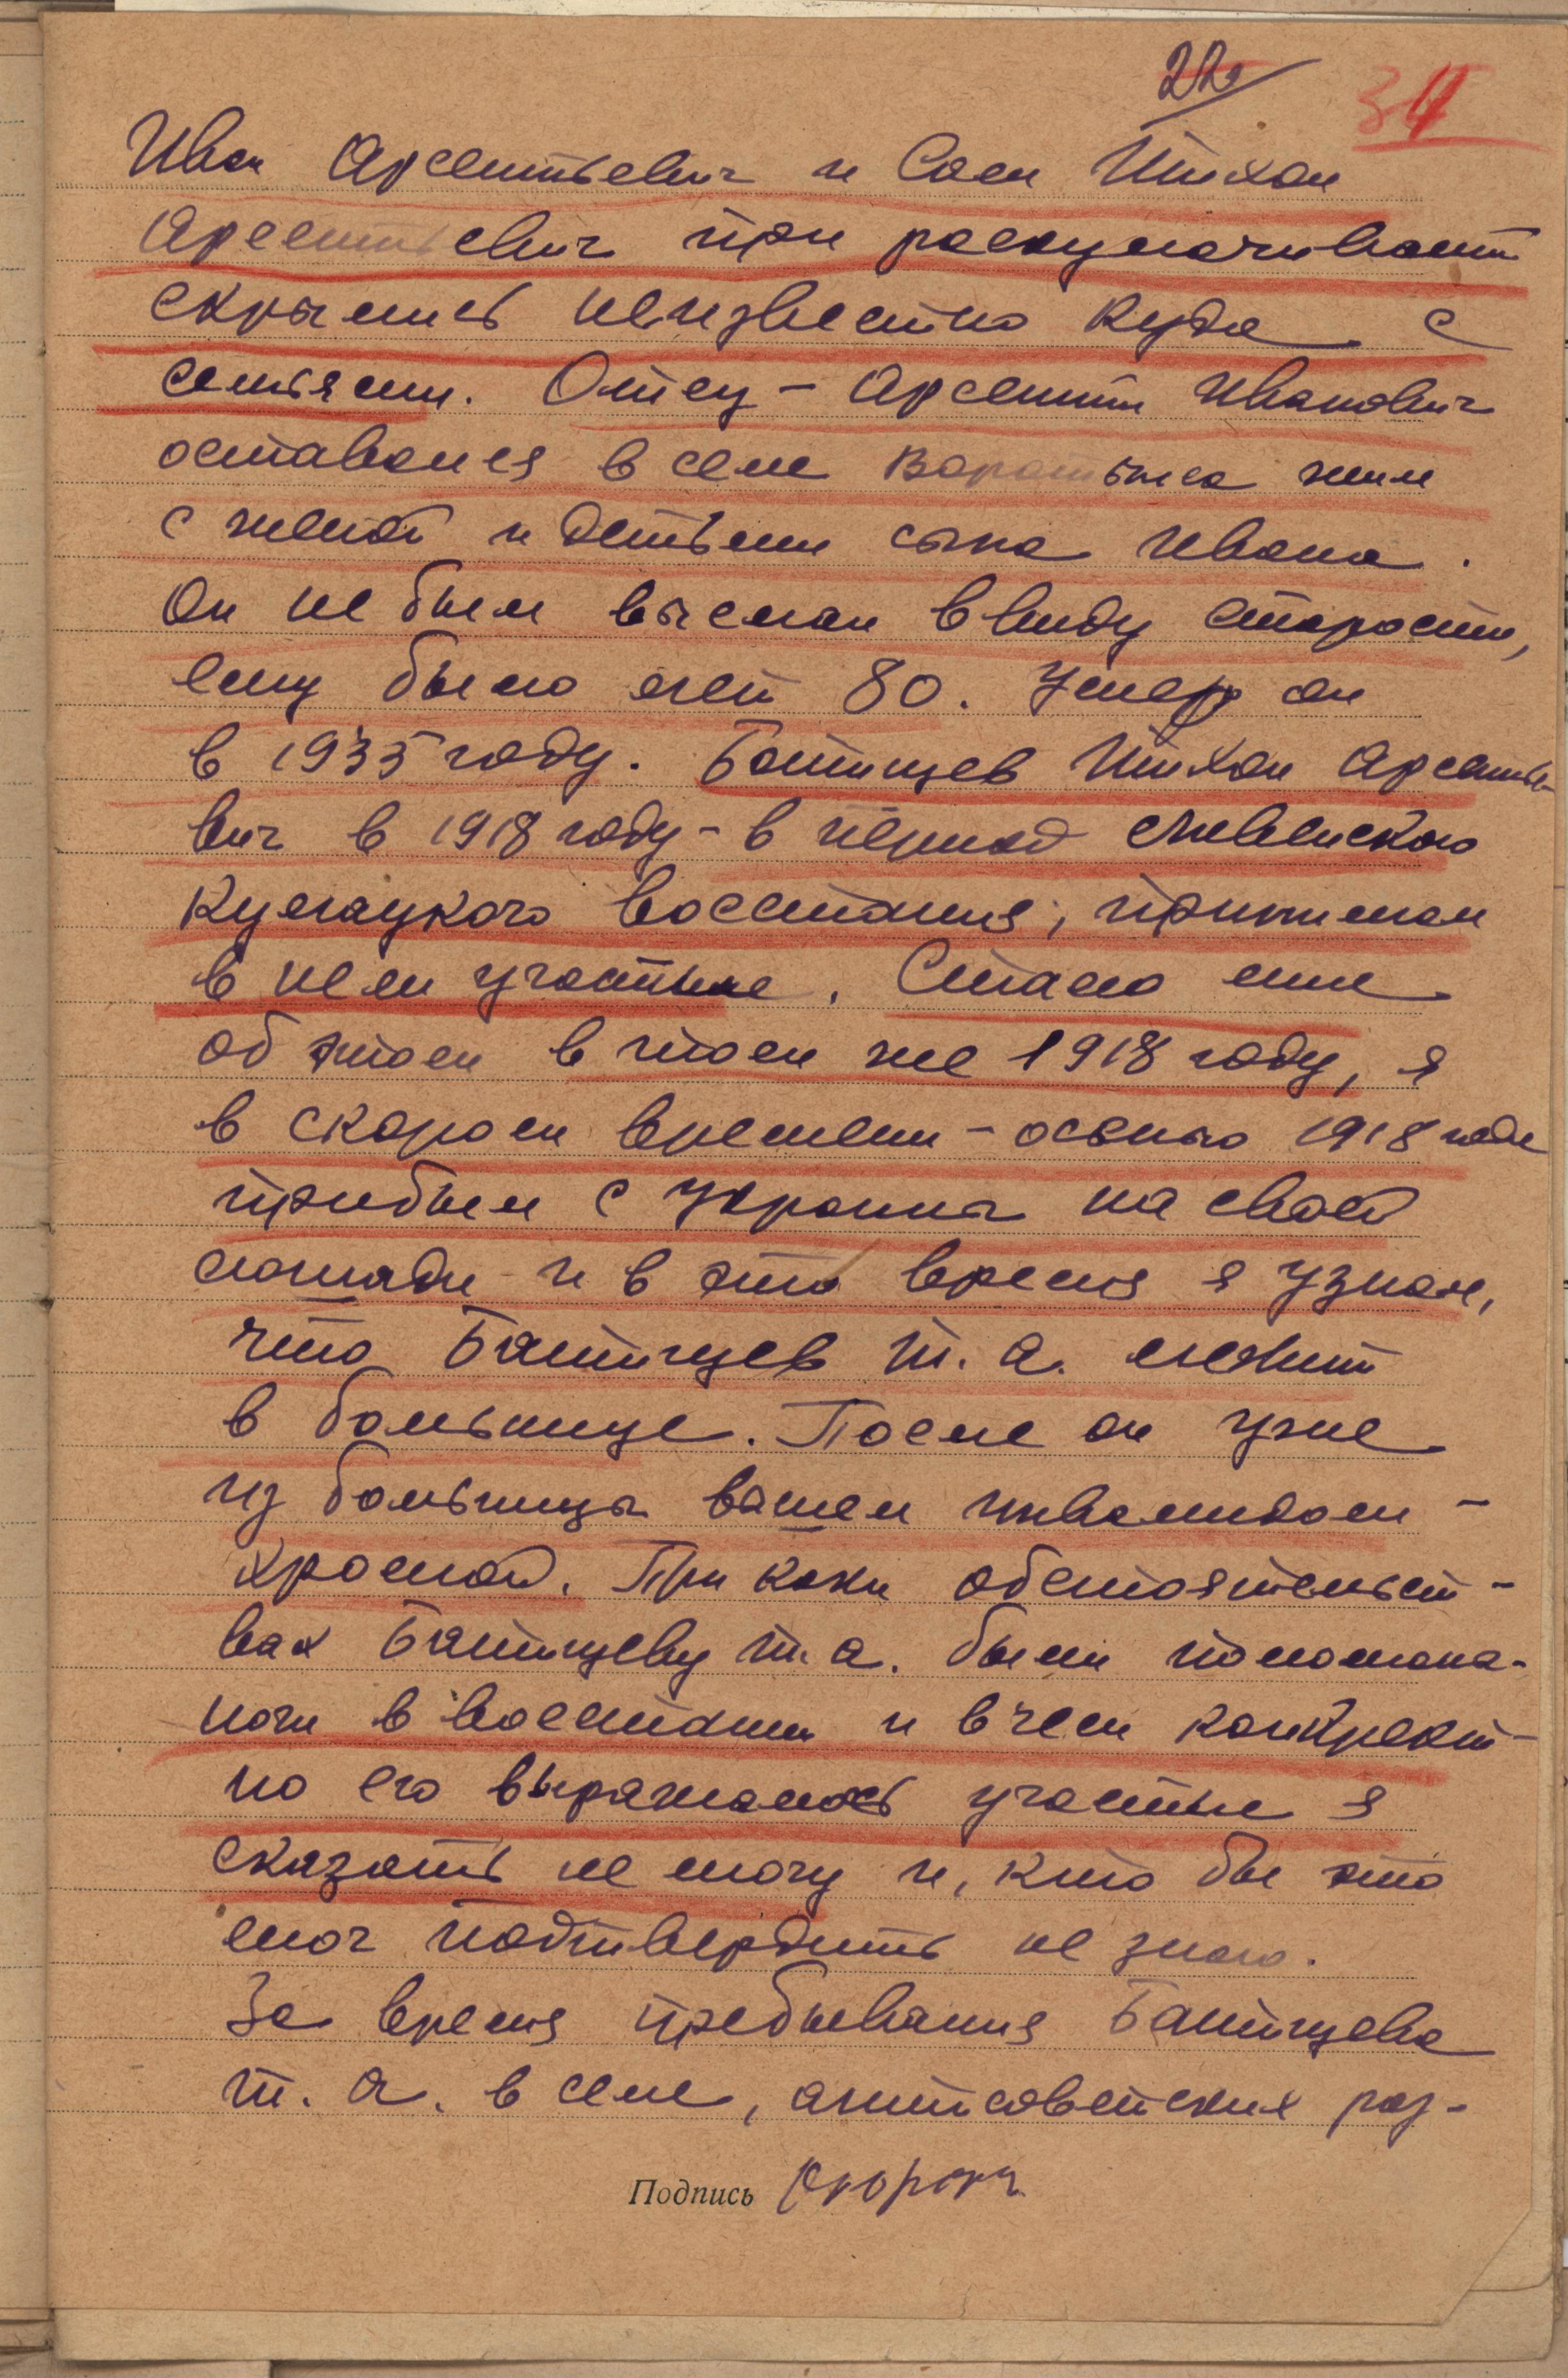 22
34
Иван Арсентьевич и Сам Тихон
Арсентьевич при раскулачивании
скрылись неизвестно куда с
семьями. Отец - Арсентий Иванович
оставался в селе жил
с женой и детьми сына Ивана.
Он не был выслан ввиду старости,
ему было лет 80. Умер он
в 1935 году. Батищев Тихон Арсенть-
вич в 1918 году - в период Ливенского
кулацкого восстания, принимал
в нем участие. Стало мне
об этом в том же 1918 году, я
в скором времени - осенью 1918 года
прибыл с Украины на свой
лошади и в это время я узнал,
что Батищев Т. А. лежит
в больнице. После он уже
из больницы вышел инвалидом -
хромой. При каки обстоятельст-
вах Батищеву Т. А. были поломана-
ноги в восстании и в чем конкрет-
но его выражалось участие я
сказать не могу и, кто бы это
мог подтвердить не знаю.
За время пребывания Батищева
Т. А. в селе, антисоветских раз-
Подпись